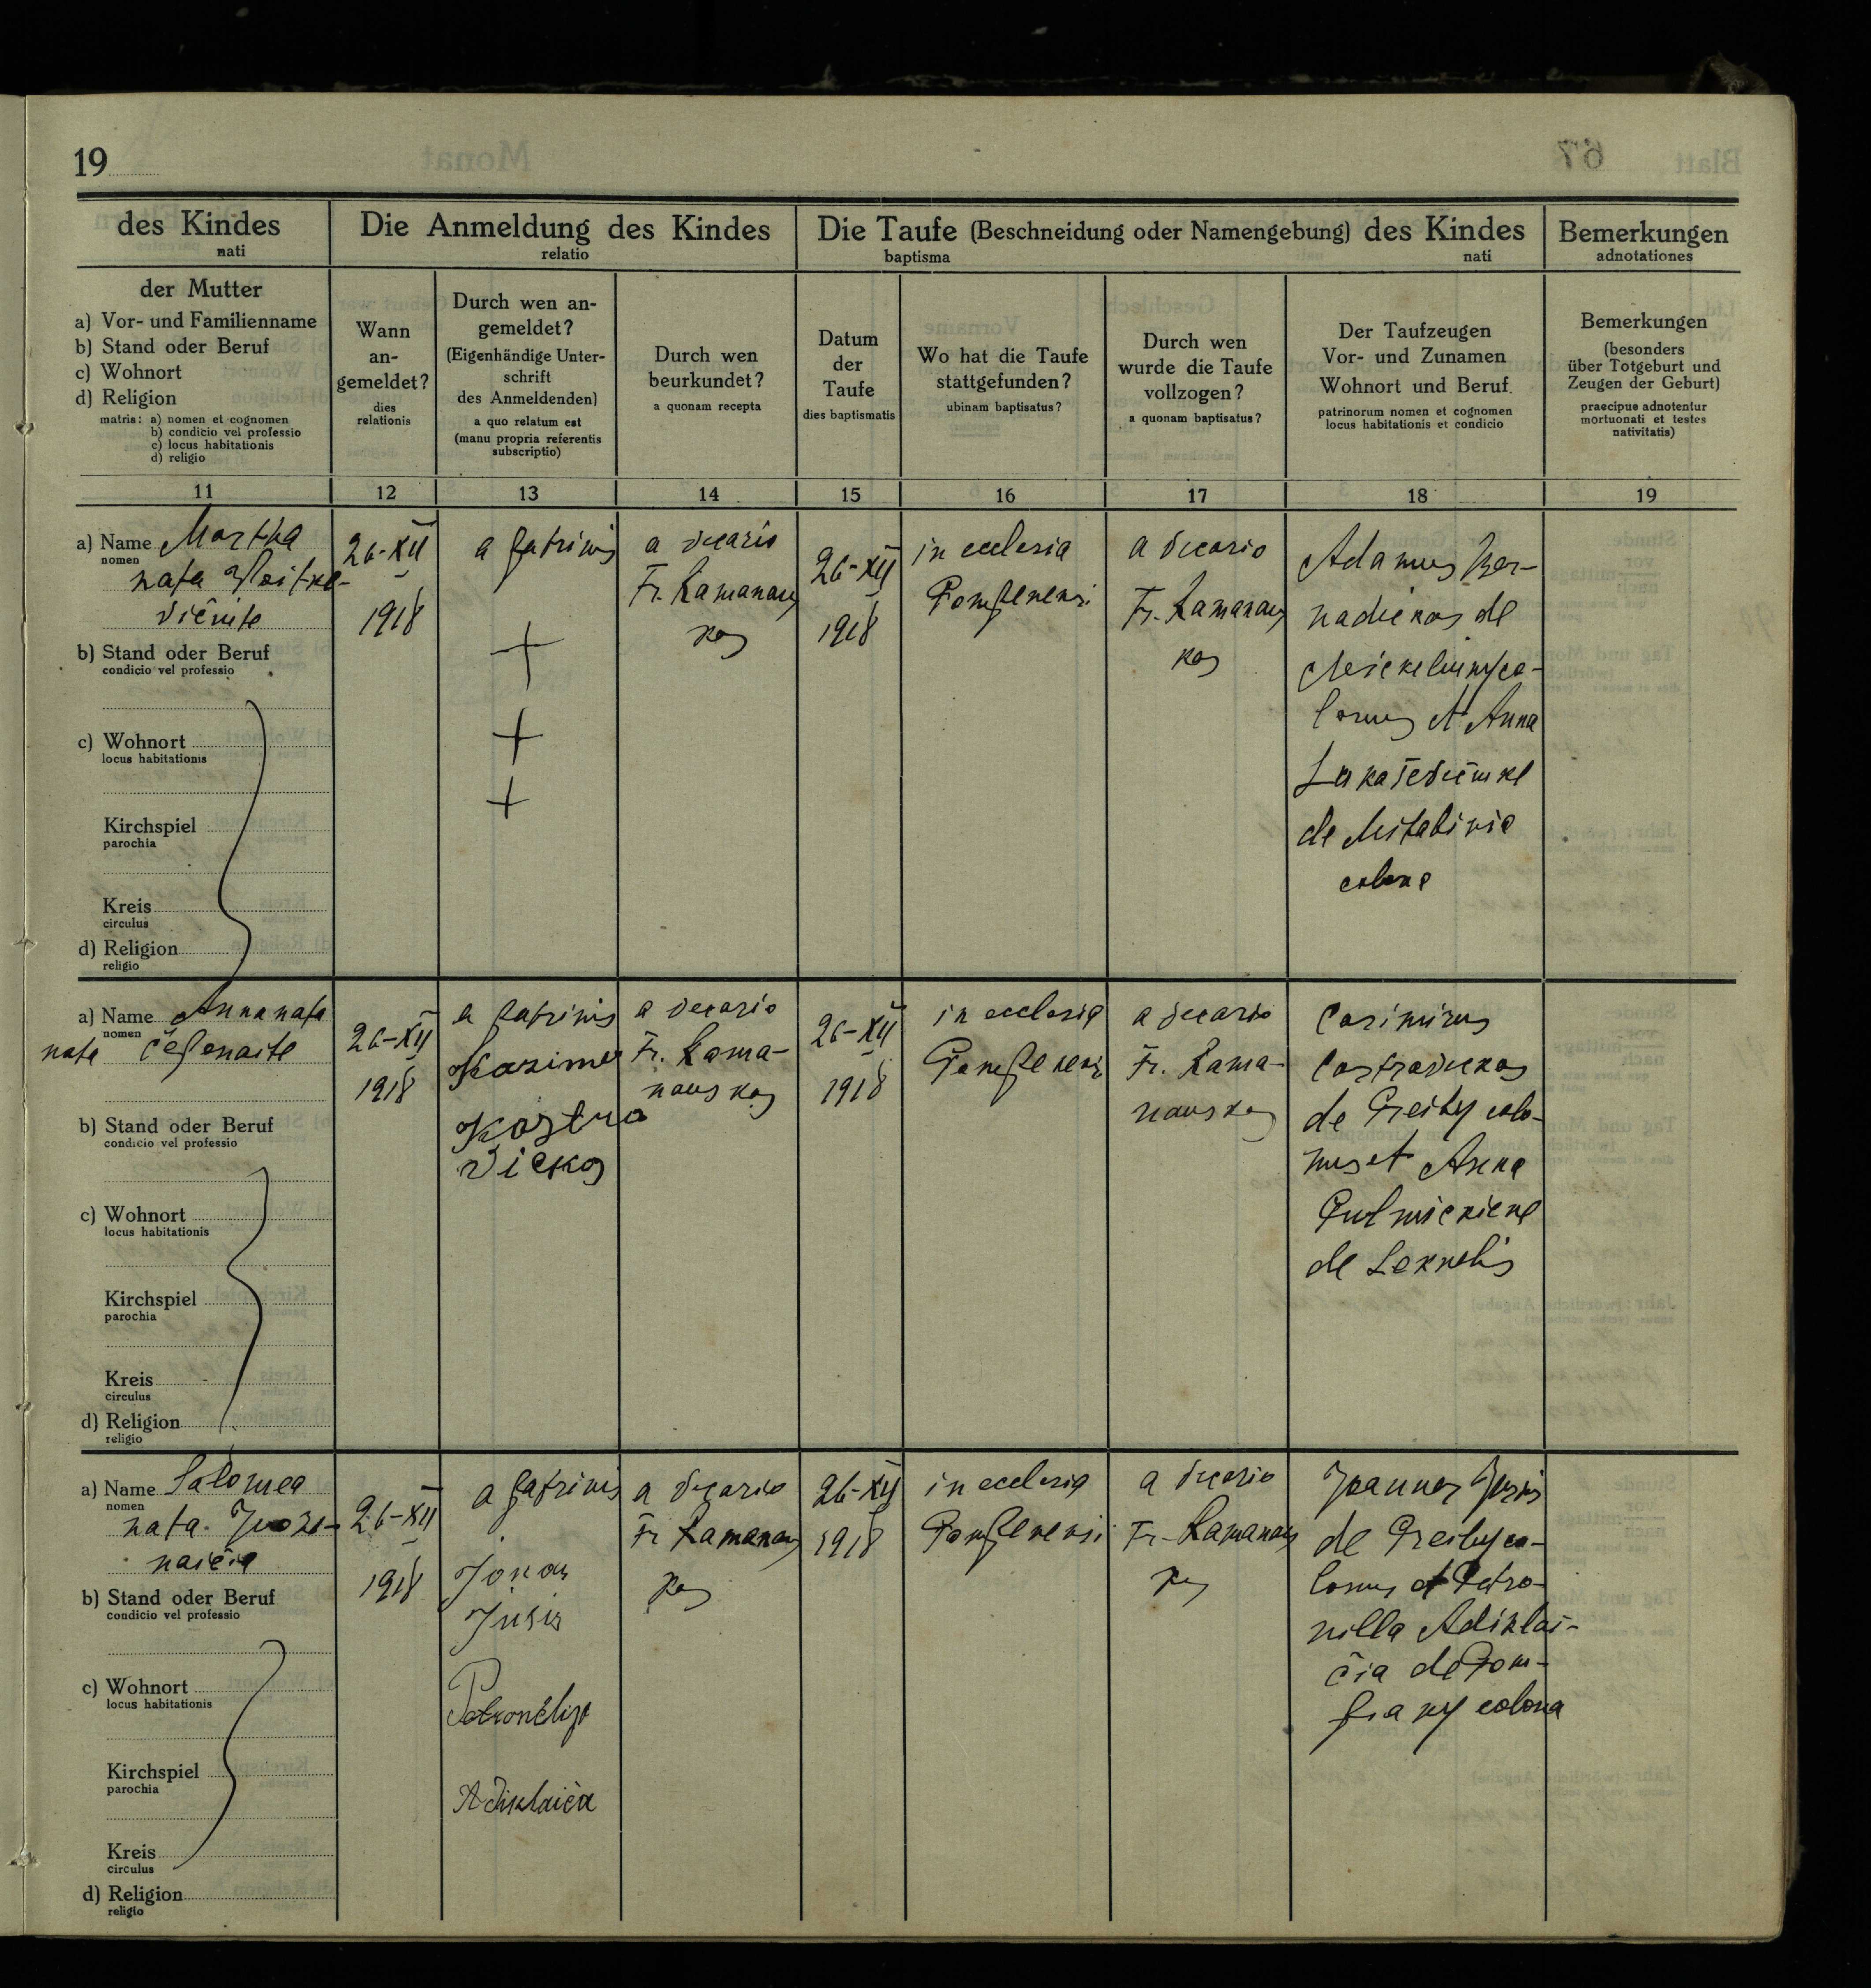 19
des Kindes
nati
Die Anmeldung des Kindes
relatio
Die Taufe (Beschneidung oder Namengebung) des Kindes
baptisma nati
Bemerkungen
adnotationes
der Mutter
a) Vor- und Familienname
b) Stand oder Beruf
c) Wohnort
d) Religion
matris: a) nomen et cognomen
b) condicio vel professio
c) locus habitationis
d) religio
Wann
an-
gemeldet?
dies
relationis
Durch wen an-
gemeldet?
(Eigenhändige Unter-
schrift
des Anmeldenden)
a quo relatum est
(manu propria referentis
subscriptio)
Durch wen
beurkundet?
a quonam recepta
Datum
der
Taufe
dies baptismatis
Wo hat die Taufe
stattgefunden?
ubinam baptisatus?
Durch wen
wurde die Taufe
vollzogen?
a quonam baptisatus?
Der Taufzeugen
Vor- und Zunamen
Wohnort und Beruf.
patrinorum nomen et cognomen
locus habitationis et condicio
Bemerkungen
(besonders
über Totgeburt und
Zeugen der Geburt)
praecipue adnotentur
mortuonati et testes
nativitatis)
11 12 13 14 15 16 17 18 19
a) Name Martha
nomen
nata
b) Stand oder Beruf
condicio vel professio
c) Wohnort
locus habitationis
Kirchspiel
parochia
Kreis
circulus
d) Religion
religio
26-XII
1918
a patrinis
+
+
+
a vicario
Fr. Ramanaus
kas
26-XII
1918
in ecclesia
Pompenensi
a vicario
Fr. Ramanaus
kas
Adamus Ber-
nadickas de
co-
lonus et Anna
de
colona
a) Name Anna nata
nomen
nata Čepenaite
b) Stand oder Beruf
condicio vel professio
c) Wohnort
locus habitationis
Kirchspiel
parochia
Kreis
circulus
d) Religion
religio
26-XII
1918
a patrinis
Kazimer
Kostra
vickas
a vicario
Fr. Rama-
nauskas
26-XII
1918
in ecclesia
Pompenensi
a vicario
Fr. Rama-
nauskas
Casimirus
Castravickas
de Preiby colo-
nus et Anna
de
a) Name Salomea
nomen
nata Juoze-
naičia
b) Stand oder Beruf
condicio vel professio
c) Wohnort
locus habitationis
Kirchspiel
parochia
Kreis
circulus
d) Religion
religio
26-XII
1918
a patrinis
Jonas
Jusis
Petronėlija
Adiklaiča
a vicario
Fr. Ramanaus
kas
26-XII
1918
in ecclesia
Pompenensi
a vicario
Fr. Ramanaus
kas
Joannes Jusis
de Preiby co-
lonus et Petro-
nilla Adiklai-
čia de Pom-
piany colona